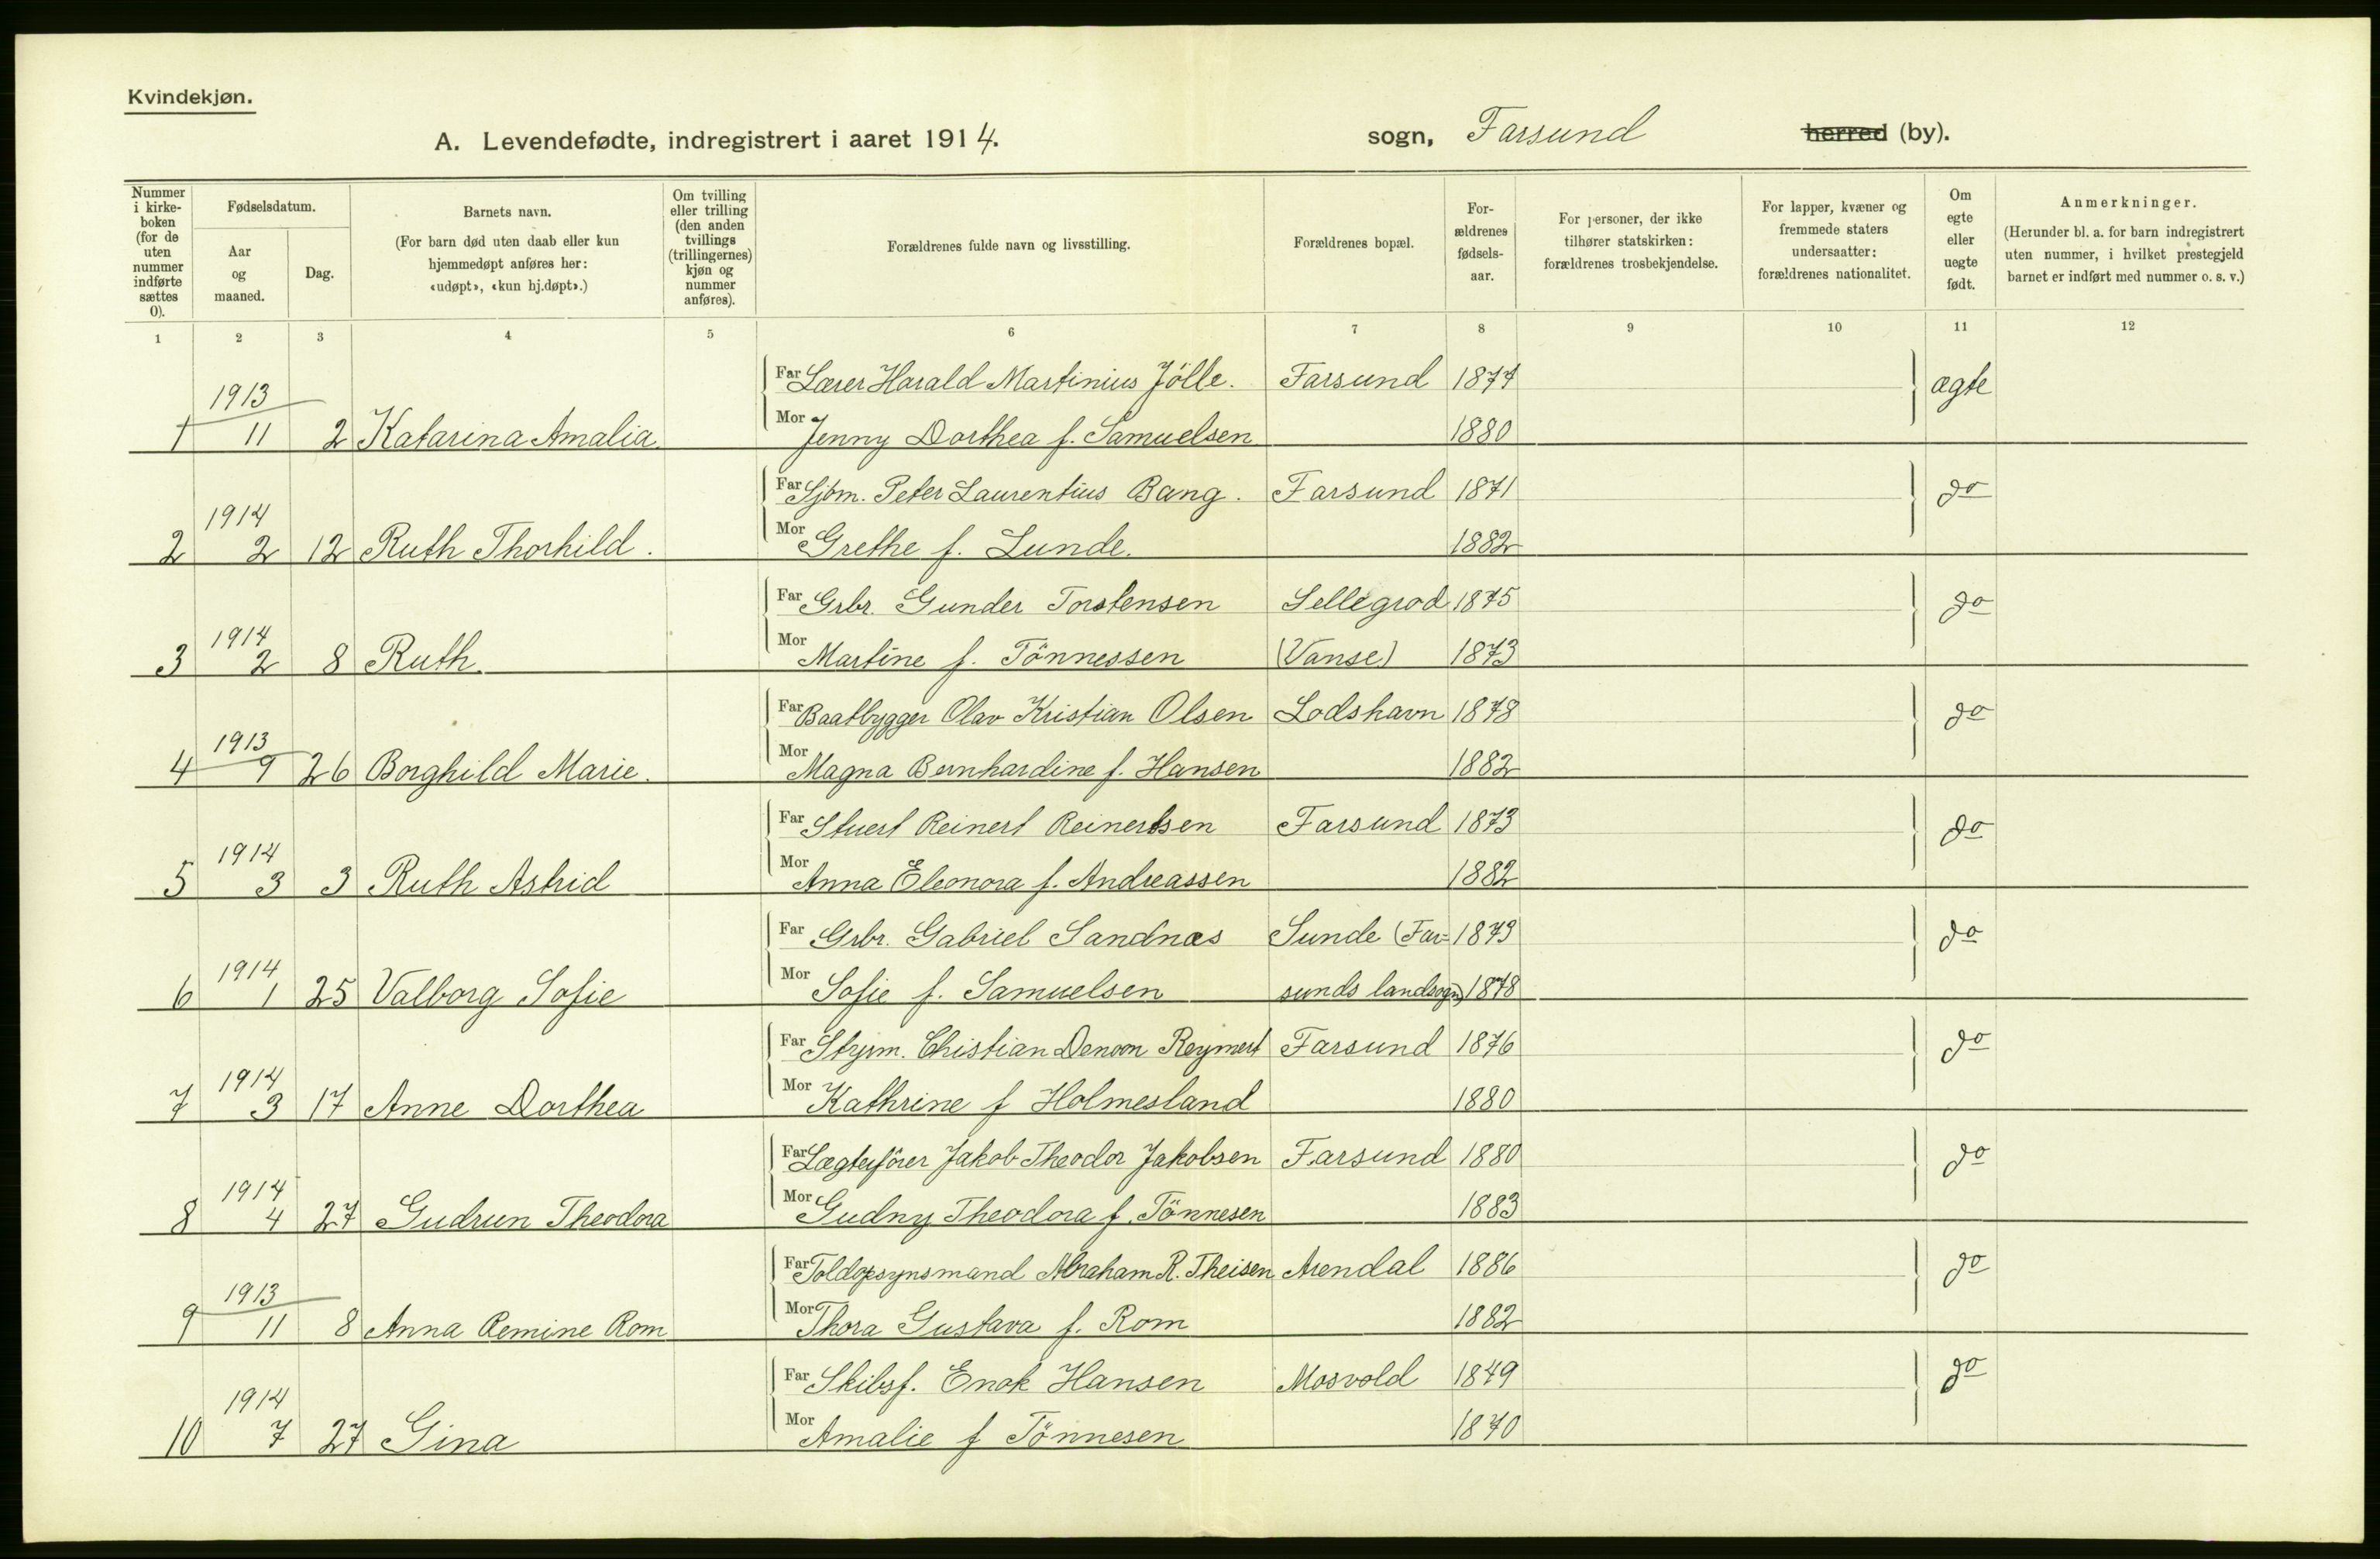 Kvindekjøn.
A. Levendefødte, indregistrert i aaret 1914. sogn, Farsund herred (by).
Nummer i kirke-boken (for de uten nummer indførte sættes 0).
Fødselsdatum.
Aar og maaned.
Dag.
Barnets navn.
(For barn død uten daab eller kun hjemmedøpt anføres her: «udøpt», «kun hj.døpt».)
Om tvilling eller trilling (den anden tvillings (trillingernes) kjøn og nummer anføres).
Forældrenes fulde navn og livsstilling.
Forældrenes bopæl.
For-ældrenes fødsels-aar.
For personer, der ikke tilhører statskirken: forældrenes trosbekjendelse.
For lapper, kvæner og fremmede staters undersaatter: forældrenes nationalitet.
Om egte eller uegte født.
Anmerkninger.
(Herunder bl. a. for barn indregistrert uten nummer, i hvilket prestegjeld barnet er indført med nummer o. s. v.)
1 2 3 4 5 6 7 8 9 10 11 12
Far Lærer Harald Martinius Jölle. Farsund 1874 ægte
1913
1 11 2 Katarina Amalia. Mor Jenny Dorthea f. Samuelsen 1880
Far Sjöm. Peter Laurentius Bang. Farsund 1871 do
1914
2 2 12 Ruth Thorhild. Mor Grethe f. Lunde. 1882
Far Grbr. Gunder Torstensen Sellegrod 1875 do
1914
3 2 8 Ruth Mor Martine f. Tönnessen (Vanse) 1873
Far Baatbygger Olav Kristian Olsen Lodshavn 1878 do
1913
4 9 26 Borghild Marie. Mor Magna Bernhardine f. Hansen 1882
Far Stuert Reinert Reinertsen Farsund 1873 do
1914
5 3 3 Ruth Astrid Mor Anna Eleonora f. Andreassen 1882
Far Grbr. Gabriel Sandnæs Sunde (Far= 1879 do
1914
6 1 25 Valborg Sofie Mor Sofie f. Samuelsen sunds landsogn) 1878
Far Styrm. Christian Denoon Reymert Farsund 1876 do
1914
7 3 17 Anne Dorthea Mor Kathrine f Holmesland 1880
Far Lægterförer Jakob Theodor Jakobsen Farsund 1880 do
1914
8 4 27 Gudrun Theodora Mor Gudny Theodora f. Tönnesen 1883
Far Toldopsynsmand Abraham R. Theisen Arendal 1886 do
1913
9 11 8 Anna Remine Rom Mor Thora Gustava f. Rom 1882
Far Skibsf. Enok Hansen Mosvold 1849 do
1914
10 7 27 Gina Mor Amalie f Tönnesen 1870